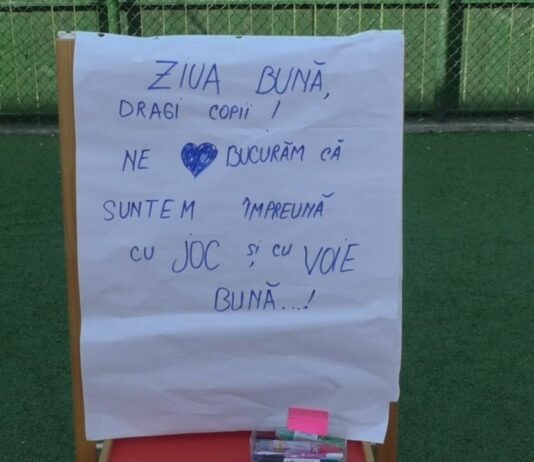 ZIUA BUNĂ,
DRAGI COPII !
NE BUCURĂM CĂ
SUNTEM ÎMPREUNĂ
CU JOC și CU VOIE
BUNĂ...!